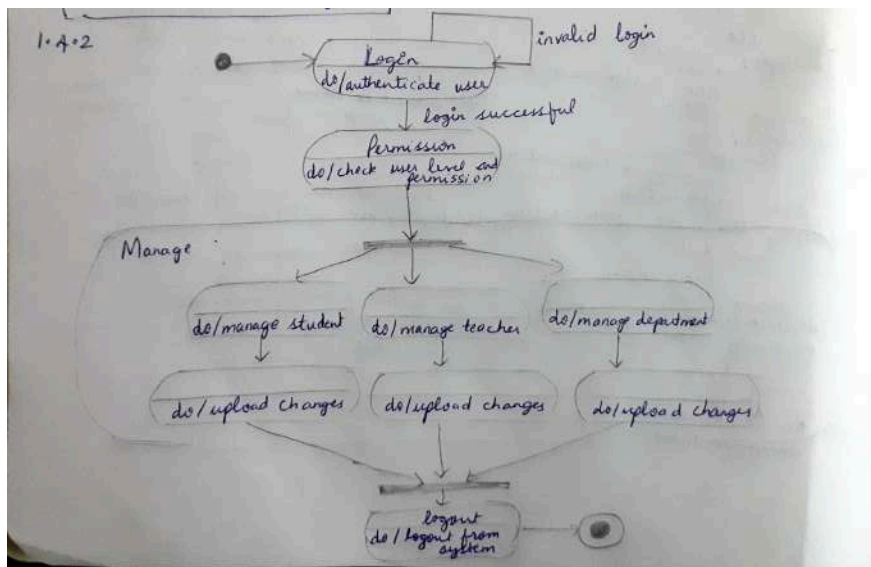 1.4.2
invalid login
Login
do/authenticate user
login successful
Permission
do/check user level and
permission
Manage
do/manage student
do/manage teacher
do/manage department
do/upload changes
do/upload changes
do/upload changes
logout
do/logout from
system